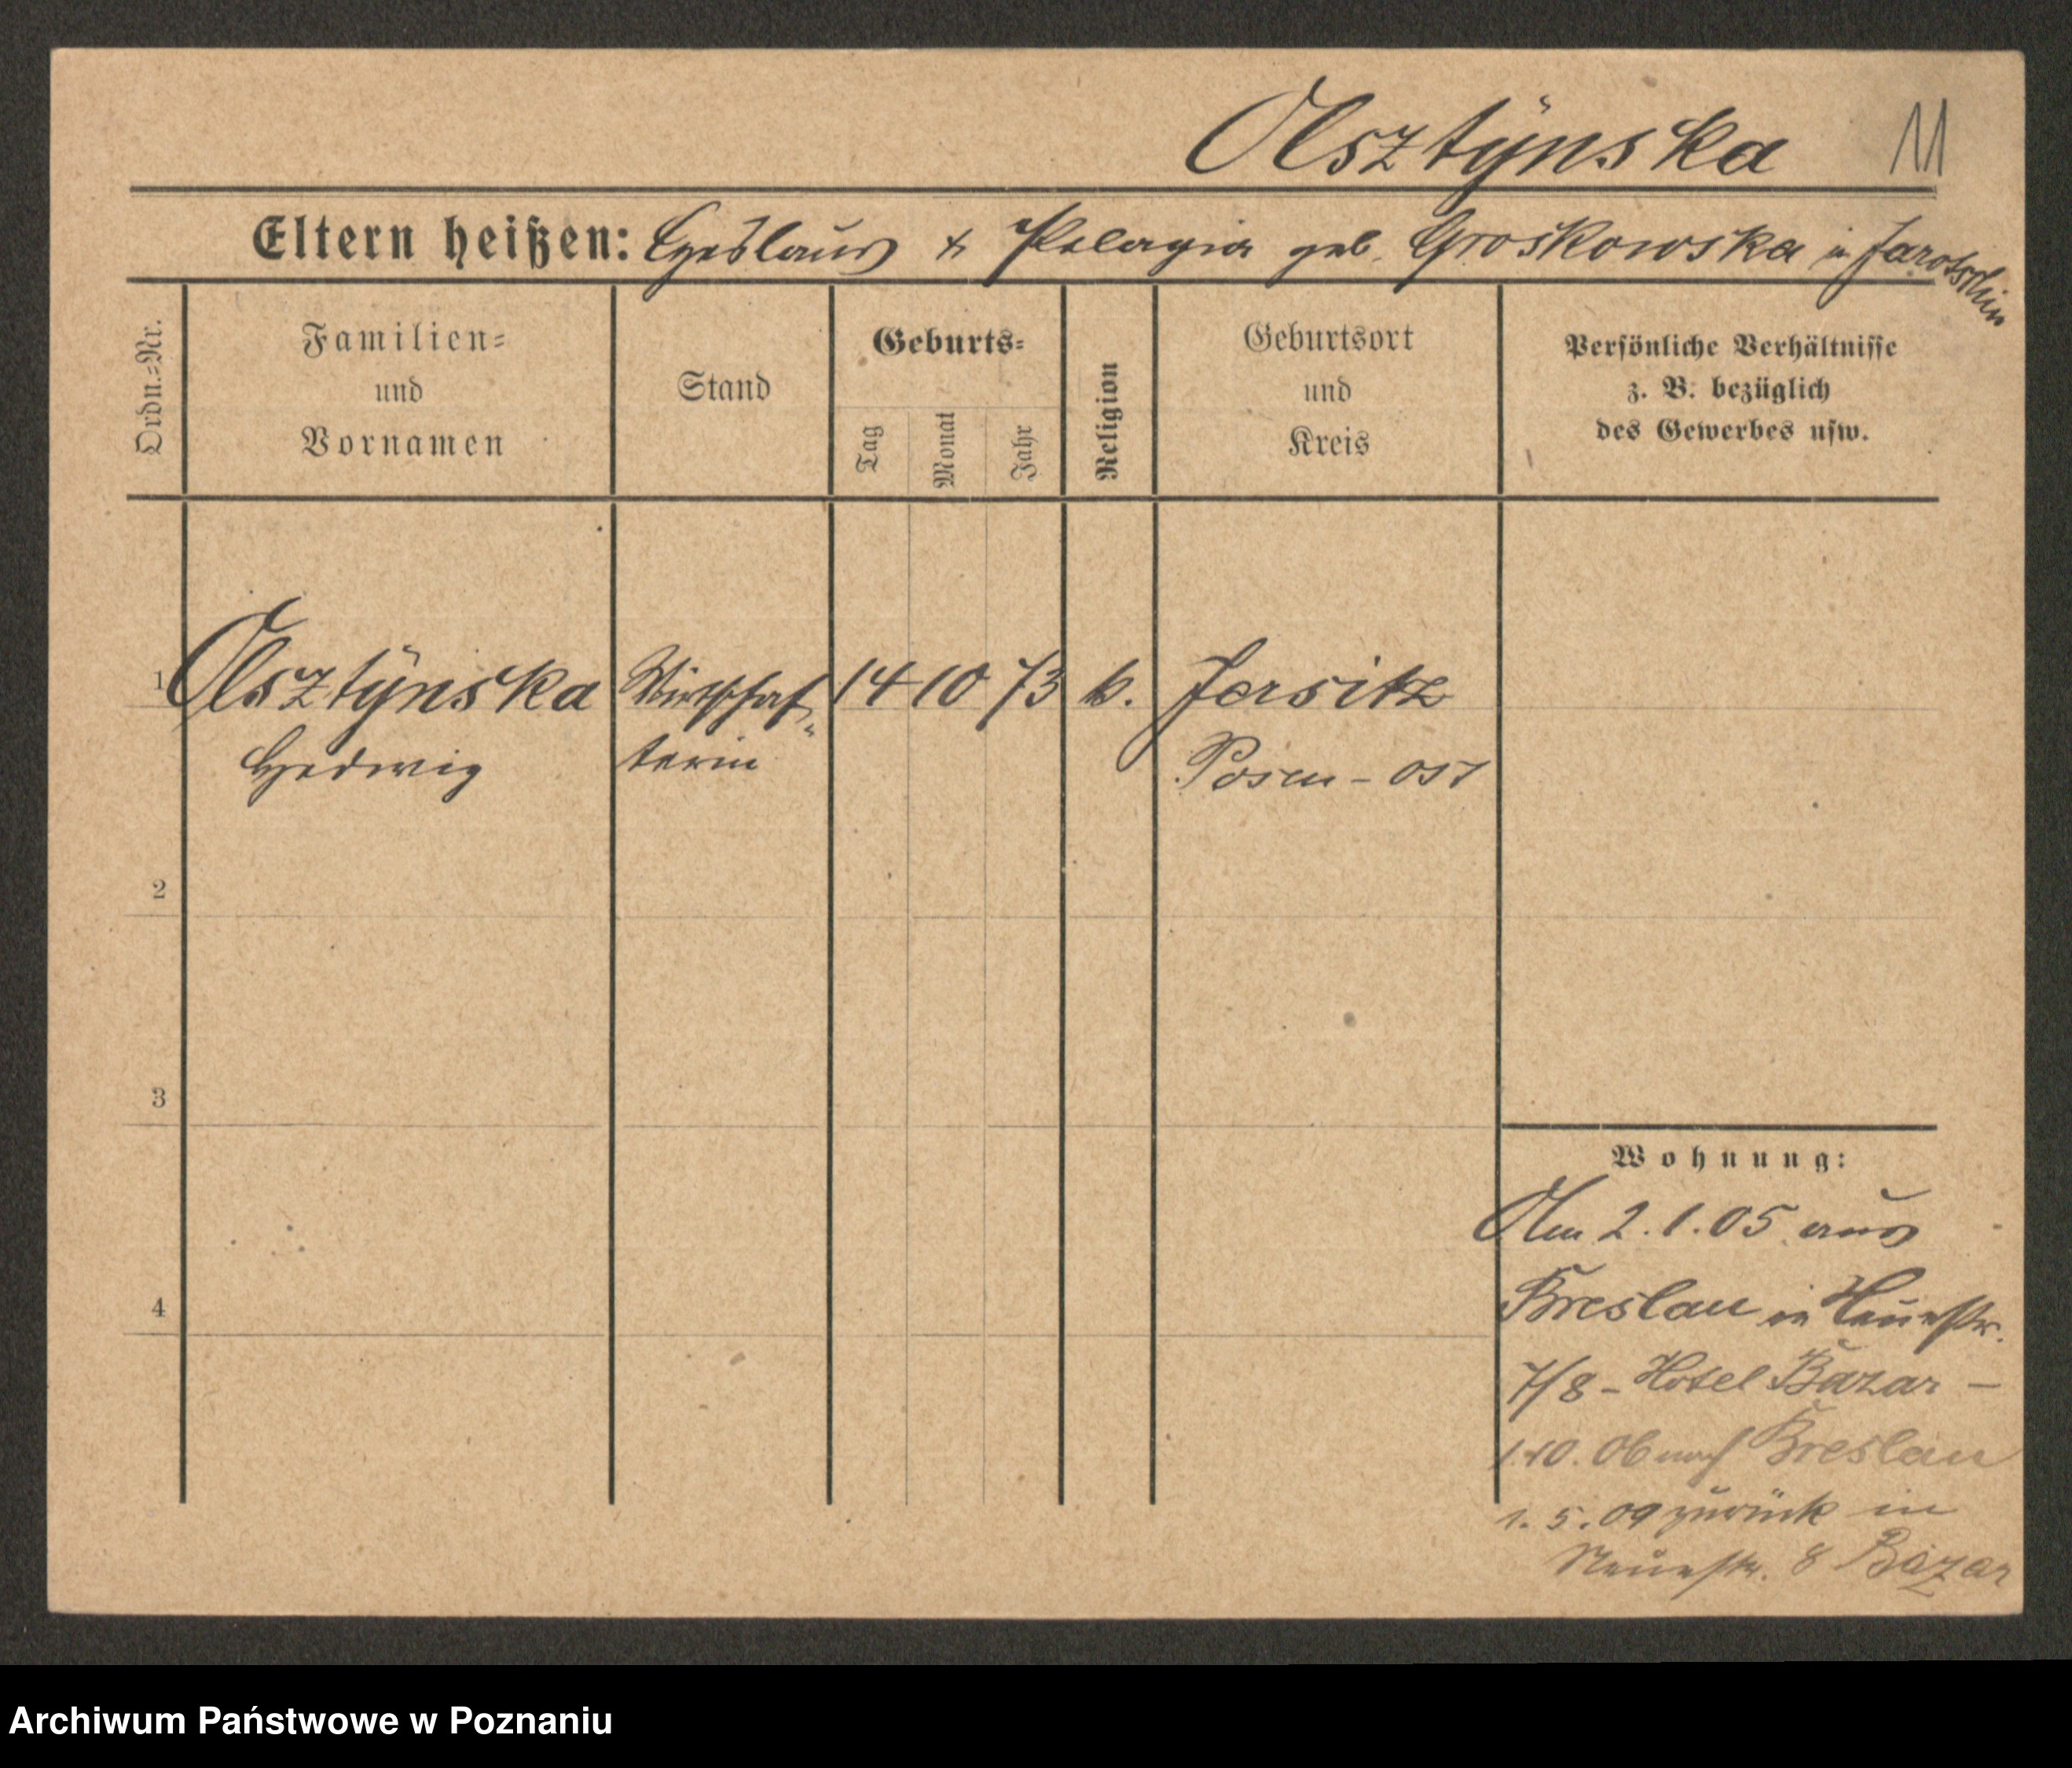 Olsztÿnska 11
Eltern heißen: Czeslaus & Pelagia geb. Groskowska in Jarotschin
Ordn.-Nr.
Familien-
und
Vornamen
Stand
Geburts-
Tag
Monat
Jahr
Religion
Geburtsort
und
Kreis
Persönliche Verhältnisse
z. B. bezüglich
des Gewerbes usw.
1 Olsztÿnska Wirtschaf- 14 10 73 k. Jersitz
Hedwig terin Posen-ost
2
3
Wohnung:
Am 2.1.05 aus
Breslau in Neuestr.
4
7/8 - Hotel Bazar -
1.10.06 nach Breslau
1.5.09 zurück in
Neuestr. 8 Bazar
Archiwum Państwowe w Poznaniu